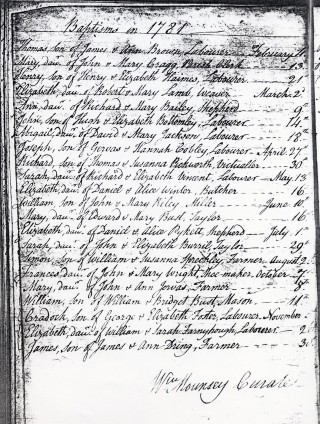 Baptisms in 1781
Thomas, Son of James & Brown, Labourer February
Mary, daur. of John & Mary Cragg, Parish Clerk 13
Henry, Son of Henry & Elizabeth Haimes, Labourer 21
Elizabeth, daur. of Robert & Mary Lamb, Weaver March 2
Ann, daur. of Richard & Mary Bailey, Shepherd 9
John, Son of Hugh & Elizabeth Labourer 14
Abigail, daur. of David & Mary Jackson, Labourer 18
Joseph, Son of Gervas & Hannah Cobley, Labourer April 27
Richard, Son of Thomas & Susanna Botworth, Victualler 30
Sarah, daur. of Richard & Elizabeth Vincent, Labourer May 13
Elizabeth, daur. of Daniel & Alice Winter, Butcher 16
William, Son of John & Mary Kiley, Miller June 10
Mary, daur. of Edward & Mary Bust, Taylor 16
Elizabeth, daur. of Daniel & Alice Pykett, Shepherd July 1st
Sarah, daur. of John & Elizabeth Burril, Taylor 29
Simon, Son of William & Susanna Spreckley, Farmer August 2
Frances, daur. of John & Mary Wright, Shoe-maker October 7
Mary, daur. of John & Ann Farmer 8
William, Son of William & Bridget Bust, Mason 11
Cradock, Son of George & Elizabeth Foster, Labourer November
Elizabeth, daur. of William & Sarah Labourer 2
James, Son of James & Ann Dring, Farmer 3
Wm Mounsey Curate